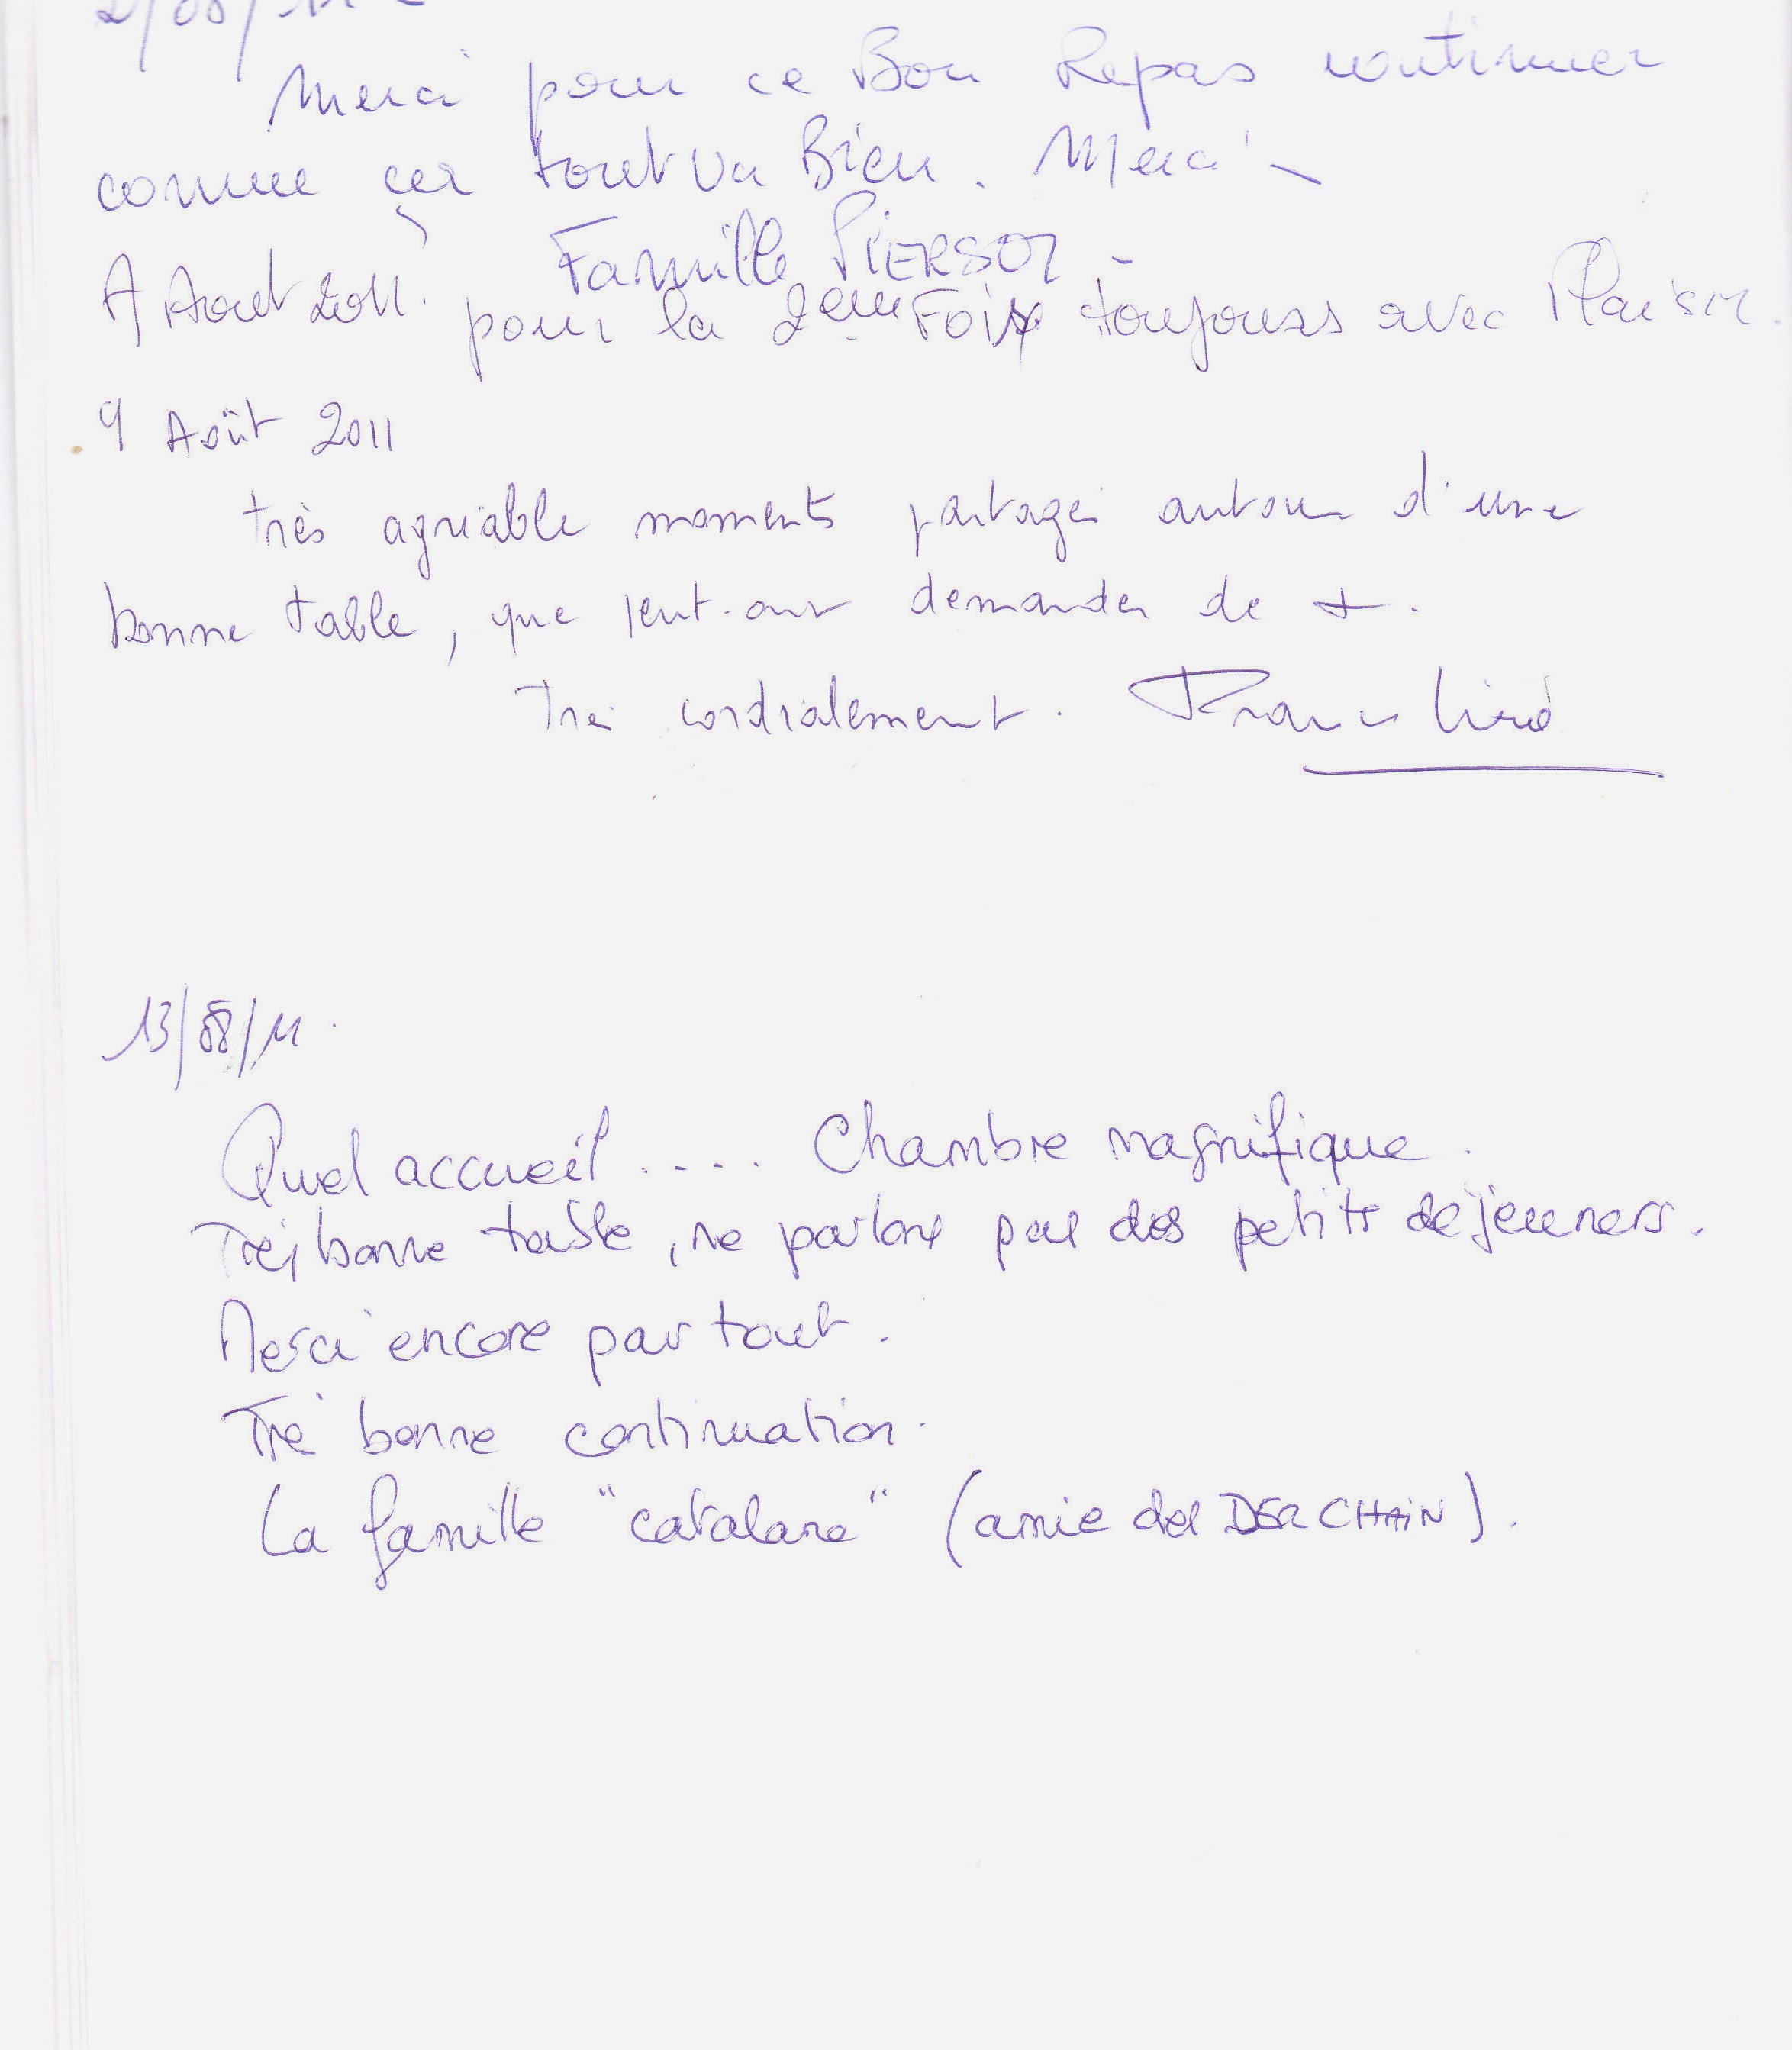 2/08/11
Merci pour ce Bon Repas continuer
comme ça tout va Bien. Merci -
Famille PIERSOT -
A Aout 2011. pour la 2eme Fois toujours avec Plaisir.
9 Août 2011
très agréable moments partagé autour d'une
bonne table, que peut-on demander de +.
Très cordialement.
13/08/11.
Quel accueil .... Chambre magnifique.
Très bonne table, ne parlons pas des petits déjeuners.
Merci encore pour tout.
Très bonne continuation.
La famille "catalane" (amie des DERCHAIN).